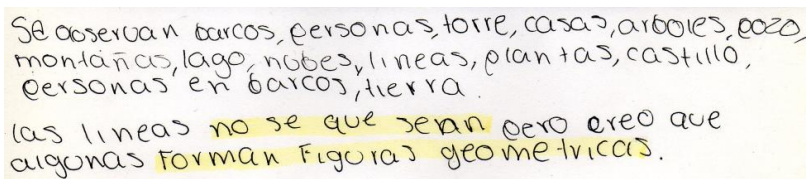 Se observan barcos, personas, torre, casas, arboles, pozo,
montañas, lago, nubes, lineas, plantas, castillo,
personas en barcos, tierra.
las lineas no se que seran pero creo que
algunas forman figuras geometricas.